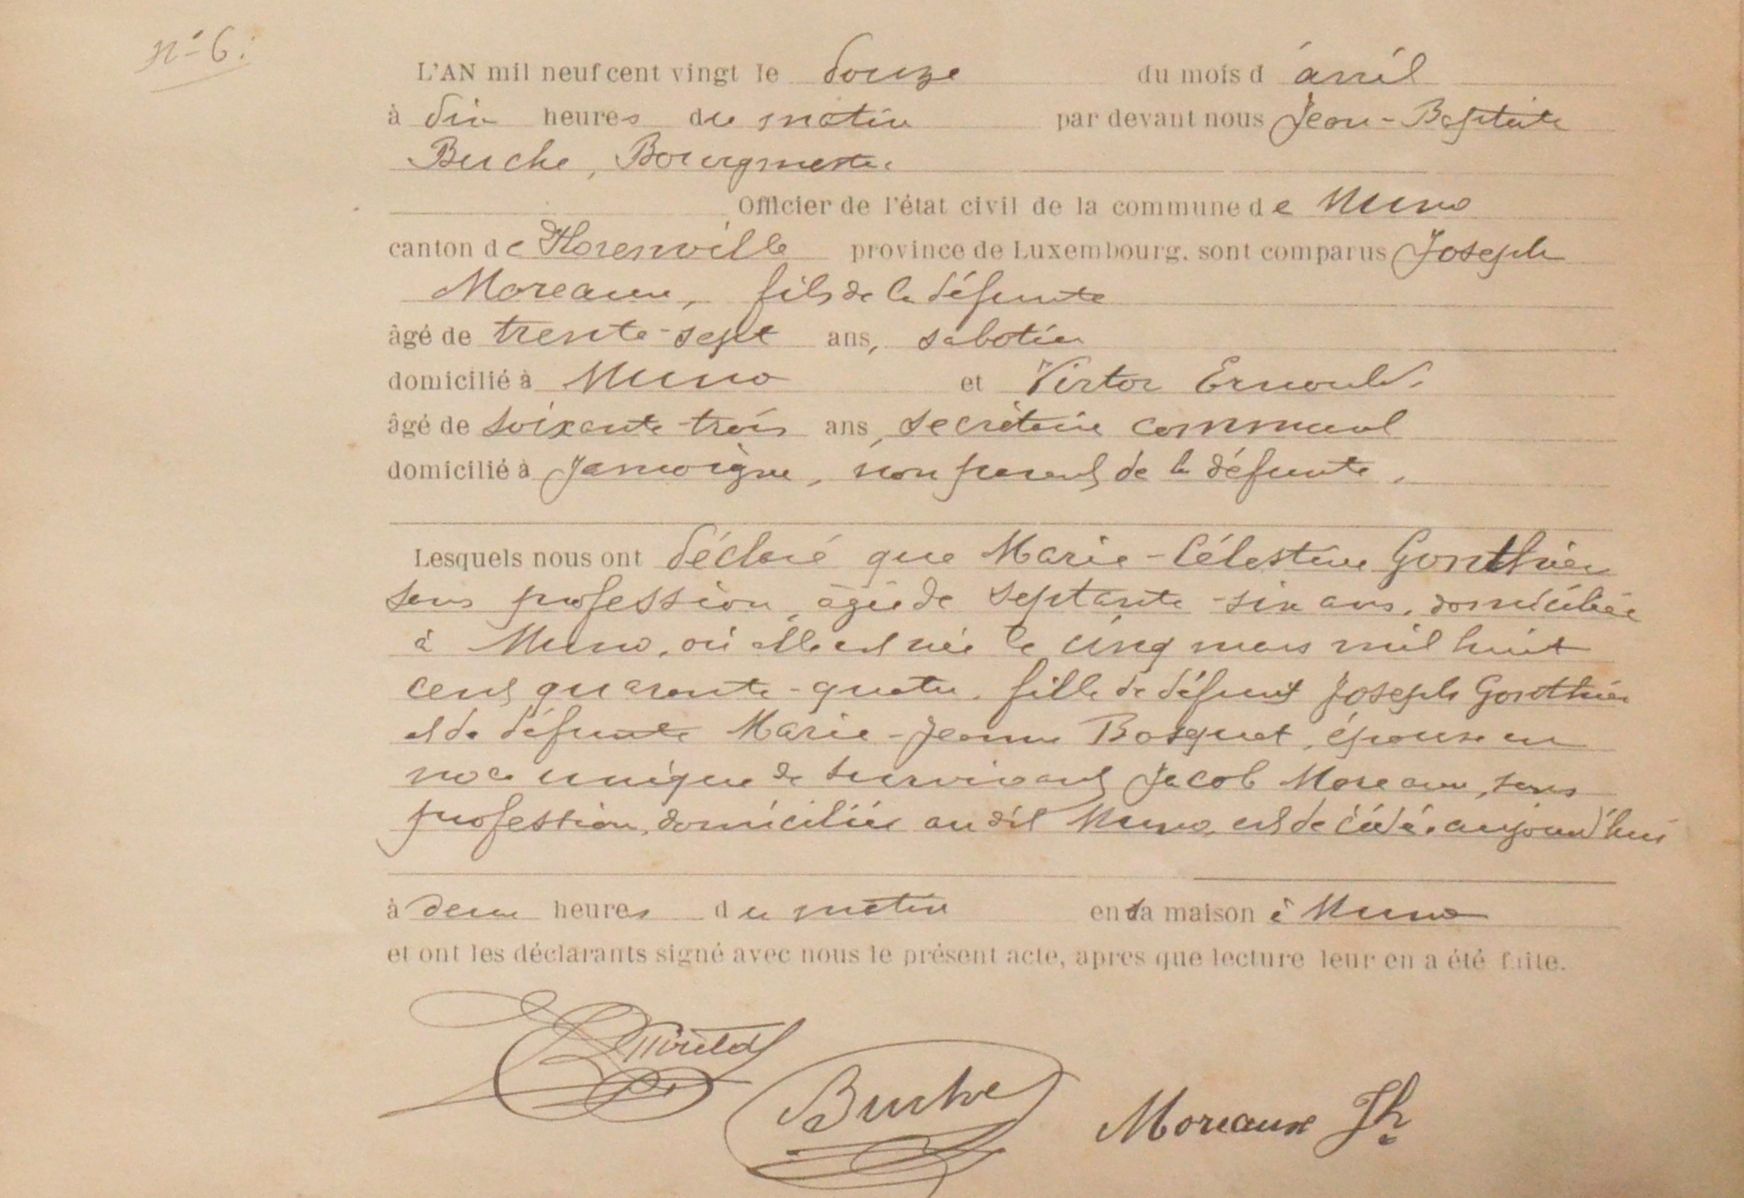 n° 6.
L'AN mil neuf cent vingt le douze du mois d'avril
à dix heures du matin par devant nous Jean-Baptiste
Buche, Bourgmestre.
Officier de l'état civil de la commune de Muno
canton de Florenville province de Luxembourg, sont comparus Joseph
Moreaux, fils de la défunte
âgé de trente-sept ans, sabotier
domicilié à Muno et Victor Ernould.
âgé de soixante-trois ans, secrétaire communal
domicilié à Jamoigne, non parent de la défunte.
Lesquels nous ont déclaré que Marie-Célestine Gonthier
sans profession, âgée de septante-six ans, domiciliée
à Muno, où elle est née le cinq mars mil huit
cent quarante-quatre, fille de défunt Joseph Gonthier
et de défunte Marie-Jeanne Bosquet, épouse en
noce unique de survivant Jacob Moreaux, sans
profession, domiciliée au dit Muno, est décédée aujourd'hui
à deux heures du matin en sa maison à Muno
et ont les déclarants signé avec nous le présent acte, apres que lecture leur en a été faite.
Ernould
Buche
Moreaux Jh